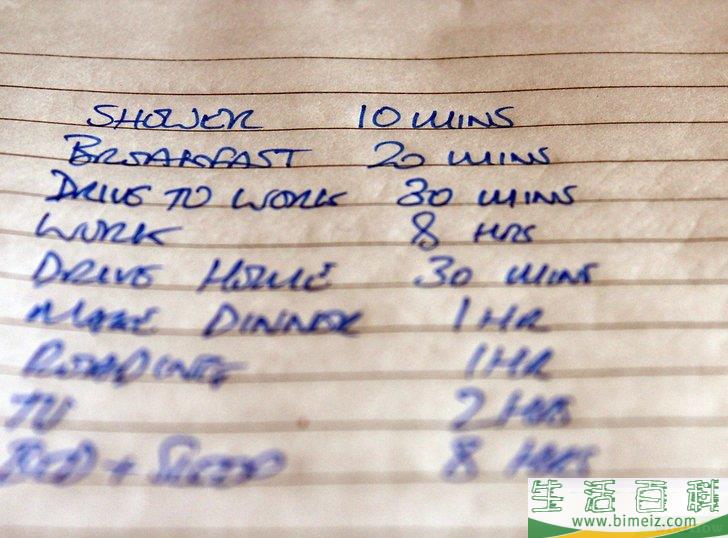 SHOWER 10 MINS
BREAKFAST 20 MINS
DRIVE TO WORK 30 MINS
WORK 8 HRS
DRIVE HOME 30 MINS
MAKE DINNER 1 HR
READING 1 HR
TV 2 HRS
BED + SLEEP 8 HRS
生活百科
www.bimeiz.com